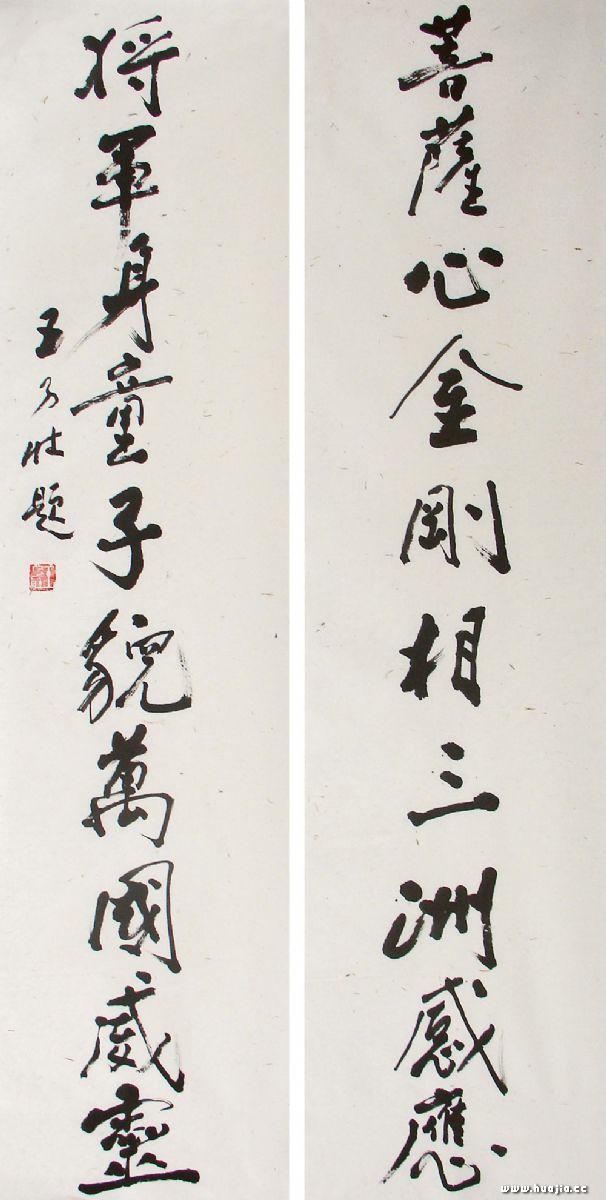 菩薩心金剛相三洲感應
將軍身童子貌萬國威靈
王乃壯題
www.huajia.cc